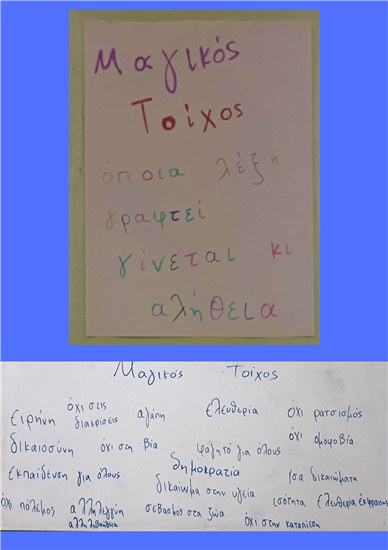 Μαγικός
Τοίχος
όποια λέξη
γραφτεί
γίνεται κι
αλήθεια
Μαγικός Τοίχος
ειρήνη όχι στις διακρίσεις αγάπη ελευθερία όχι ρατσισμός
δικαιοσύνη όχι στη βία φαγητό για όλους όχι ομοφοβία
εκπαίδευση για όλους δημοκρατία ίσα δικαιώματα
δικαίωμα στην υγεία ισότητα ελευθερία έκφρασης
όχι πόλεμος αλληλεγγύη σεβασμός στα ζώα
αλληλοβοήθεια όχι στην καταπίεση